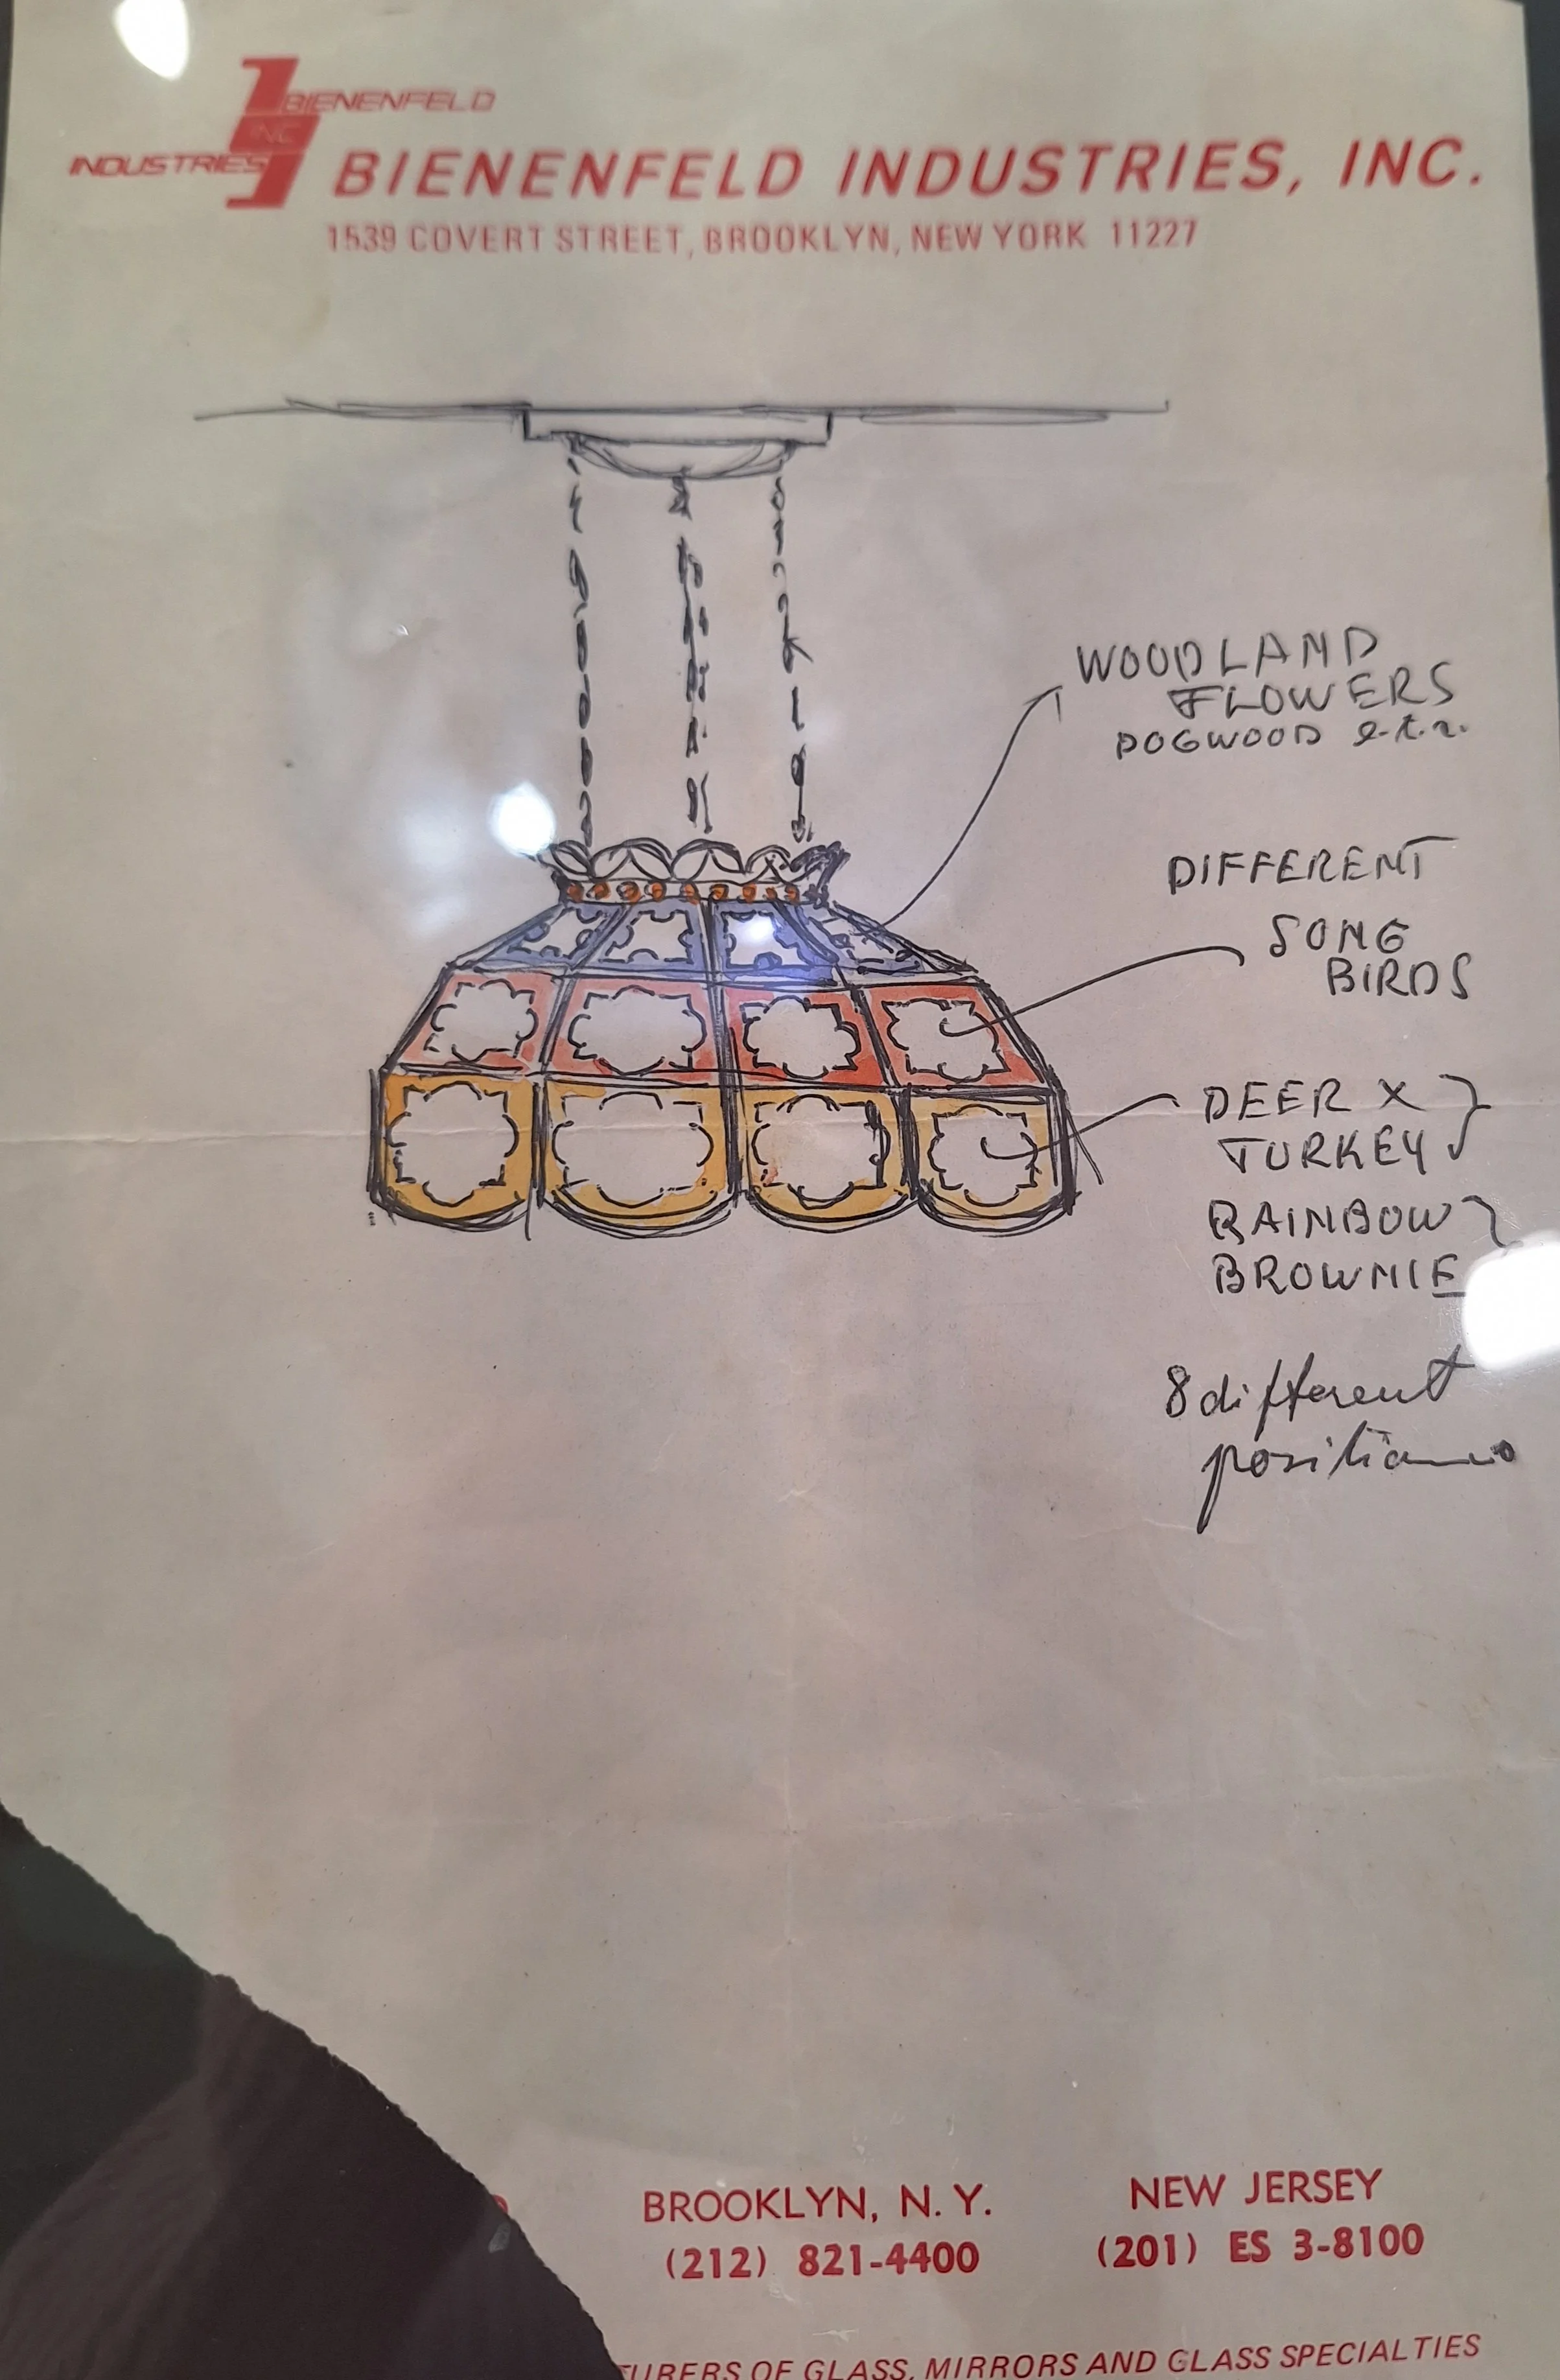 BIENENFELD
INC
INDUSTRIES
BIENENFELD INDUSTRIES, INC.
1539 COVERT STREET, BROOKLYN, NEW YORK 11227
WOODLAND
FLOWERS
DOGWOOD e.t.c.
DIFFERENT
SONG
BIRDS
DEER X
TURKEY
RAINBOW
BROWNIE
8 different
positions
BROOKLYN, N. Y.
(212) 821-4400
NEW JERSEY
(201) ES 3-8100
TURERS OF GLASS, MIRRORS AND GLASS SPECIALTIES